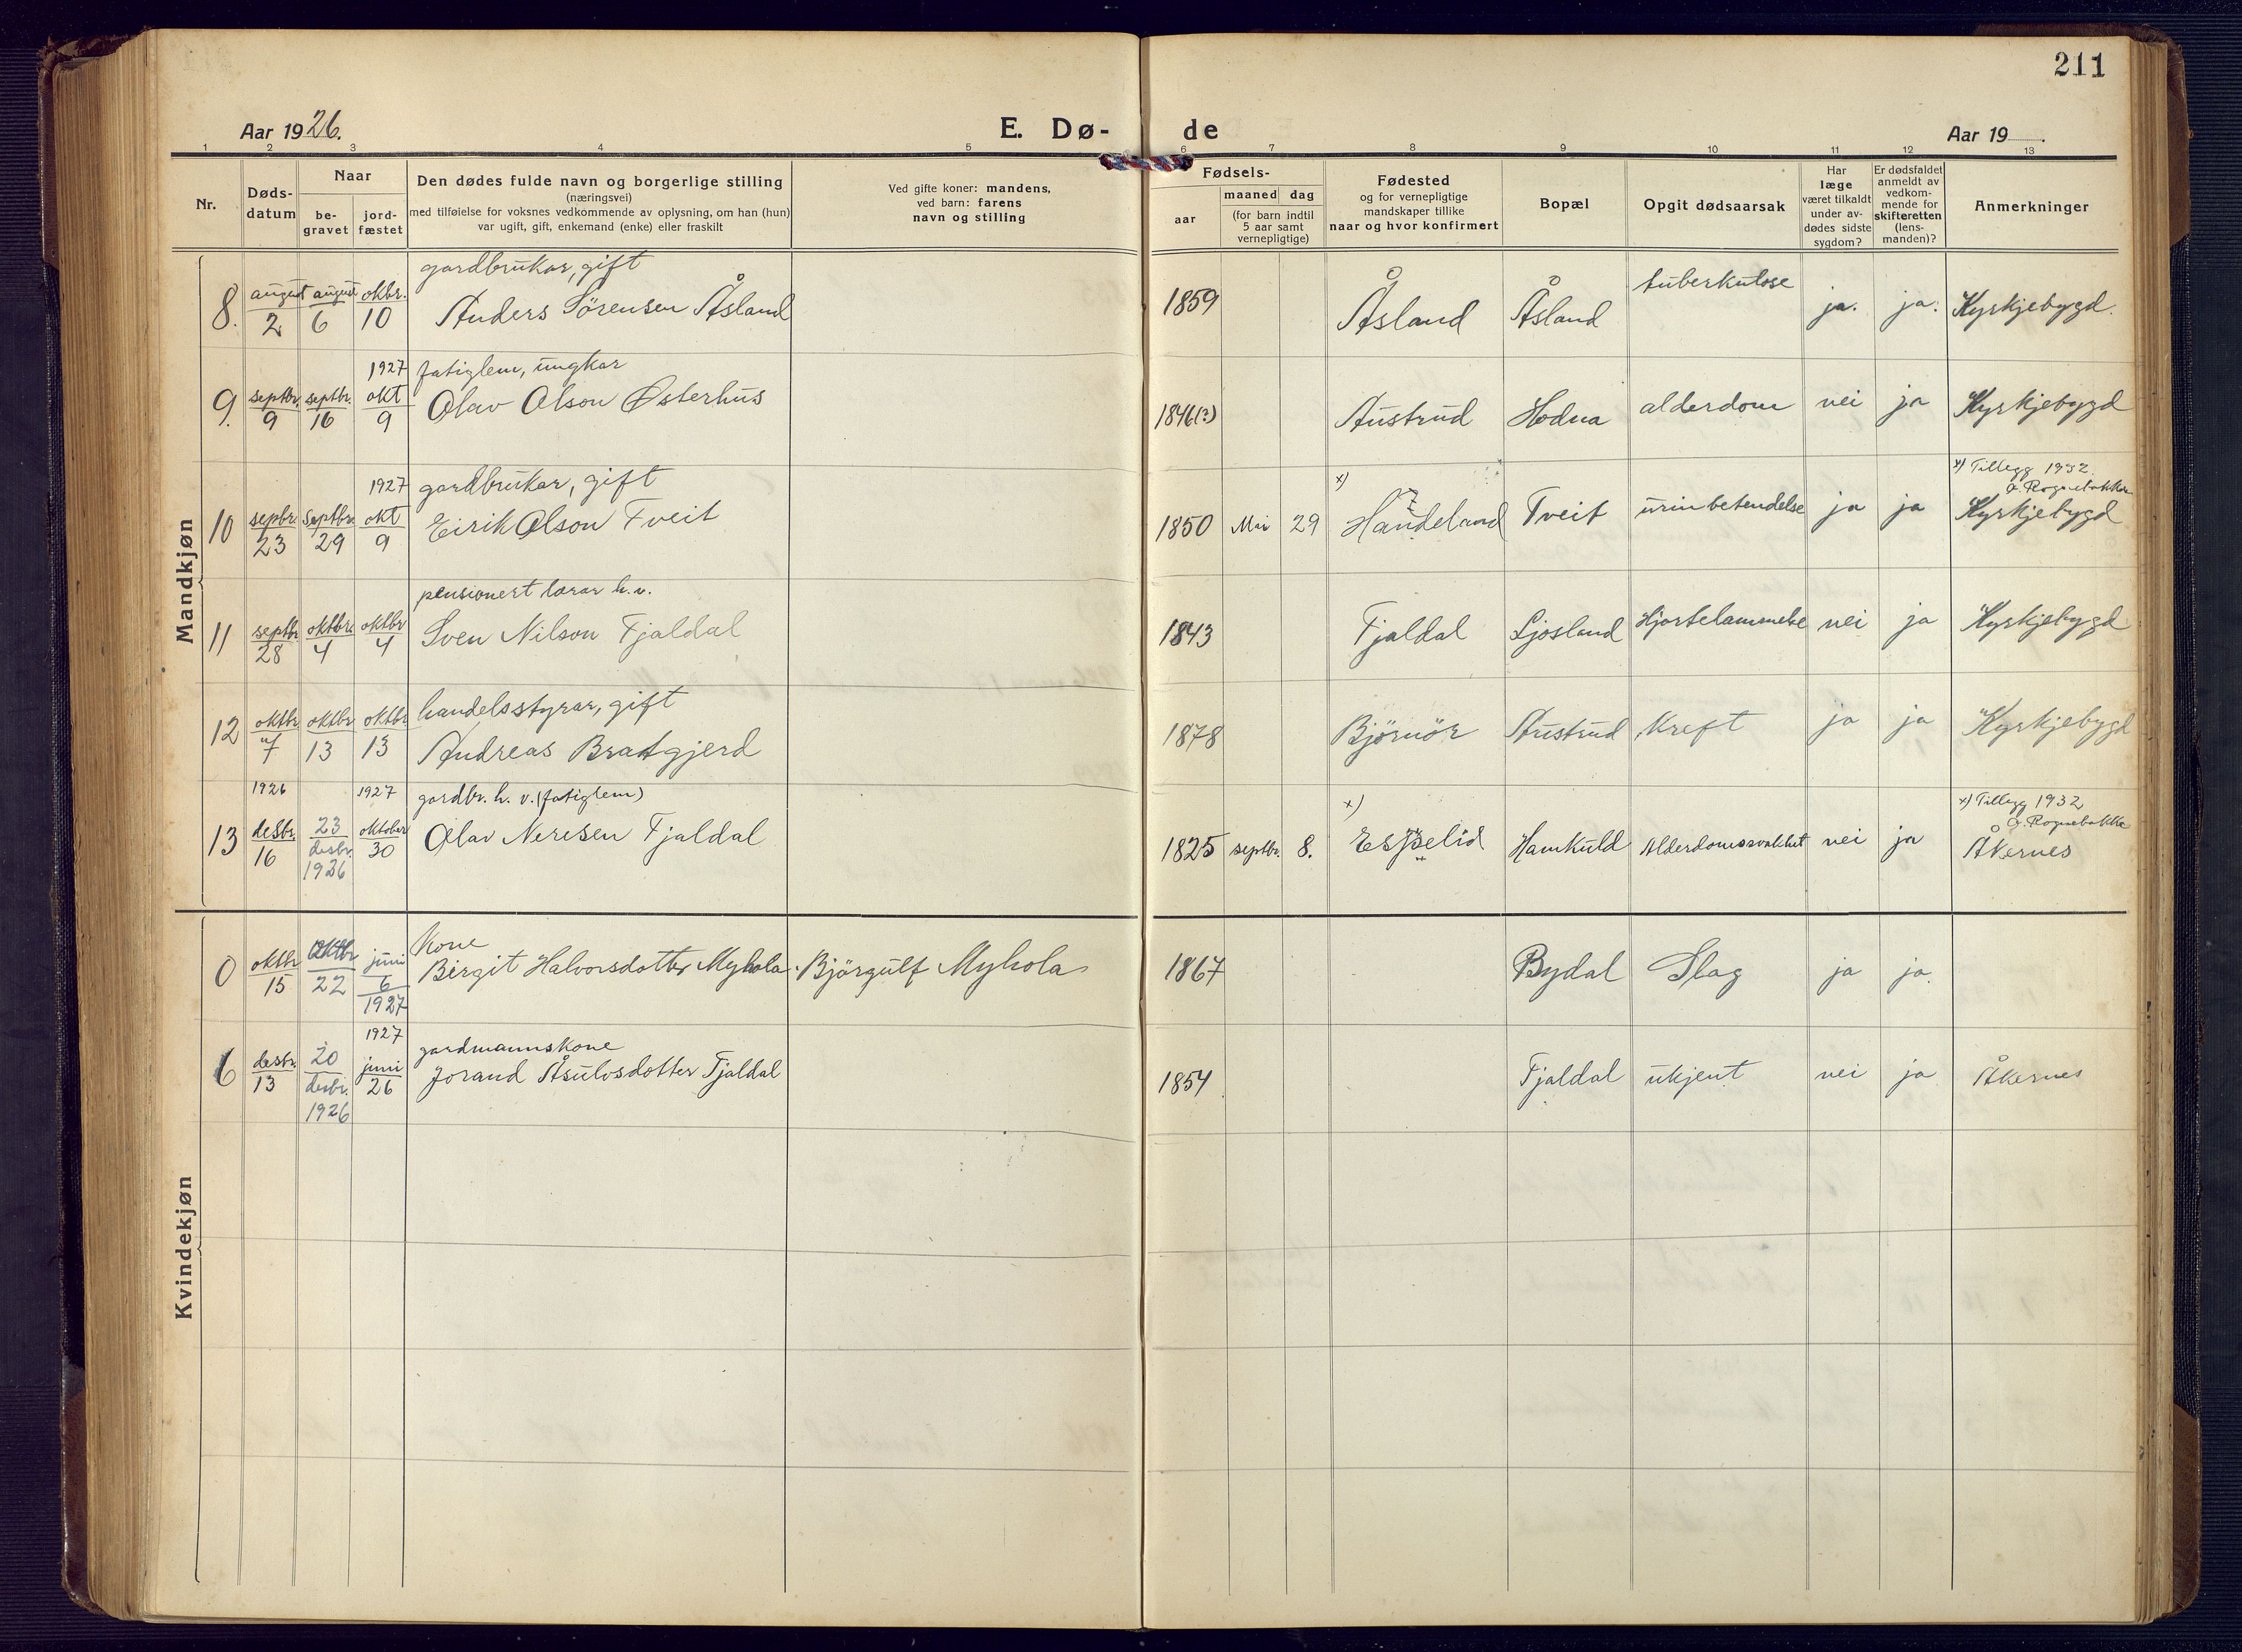 211
Aar 1926.
E. Dø-
de
Aar 19
1 2 3 4 5 6 7 8 9 10 11 12 13
Nr.
Døds-
datum
Naar
be-
gravet
jord-
fæstet
Den dødes fulde navn og borgerlige stilling
(næringsvei)
med tilføielse for voksnes vedkommende av oplysning, om han (hun)
var ugift, gift, enkemand (enke) eller fraskilt
Ved gifte koner: mandens,
ved barn: farens
navn og stilling
Fødsels-
aar
maaned dag
(for barn indtil
5 aar samt
vernepligtige)
Fødested
og for vernepligtige
mandskaper tillike
naar og hvor konfirmert
Bopæl
Opgit dødsaarsak
Har
læge
været tilkaldt
under av-
dødes sidste
sygdom?
Er dødsfaldet
anmeldt av
vedkom-
mende for
skifteretten
(lens-
manden)?
Anmerkninger
Mandkjøn
gardbrukar, gift
8. august 2 august 6 oktbr. 10 Anders Sörensen Åsland 1859 Åsland Åsland tuberkulose ja. ja. Kyrkjebygd.
1927 fatiglem, ungkar
9. septbr. 9 septbr. 16 okt 9 Olav Olson Østerhus 1846(?) Austrud Hodna alderdom nei ja Kyrkjebygd
1927 gardbrukar, gift x) x) Tillegg 1932.
10 sepbr. 23 Septbr. 29 okt 9 Eirik Olson Tveit 1850 Mai 29 Handeland Tveit urinbetendelse ja ja Kyrkjebygd
pensionert lærar h.v.
11 septbr 28 oktbr. 4 oktbr 4 Sven Nilson Fjaldal 1843 Fjaldal Ljosland Hjartelammelse nei ja Kyrkjebygd
handelsstyrar, gift
12 oktbr. 7 oktbr 13 oktbr. 13 Andreas Bratgjerd 1878 Björnör Austrud Kreft ja ja Kyrkjebygd
1926 1927 gardbr. h. v. (fatiglem) x) x) Tillegg 1932
13 desbr. 16 23 desbr. 1926 oktober 30 Olav Neresen Fjaldal 1825 septbr. 8. Espelid Hamkuld Alderdomssvakhet nei ja Åkernes
Kvindekjøn
Kone
0 oktbr 15 Oktbr 22 juni 6 1927 Birgit Halvorsdotter Myhola. Björgulf Myhola 1867 Bydal Slag ja ja.
1927
gardmannskone
6 desbr. 13 20 desbr. 1926 juni 26 Jorand Åsulvsdotter Fjaldal 1854 Fjaldal ukjent nei ja Åkernes